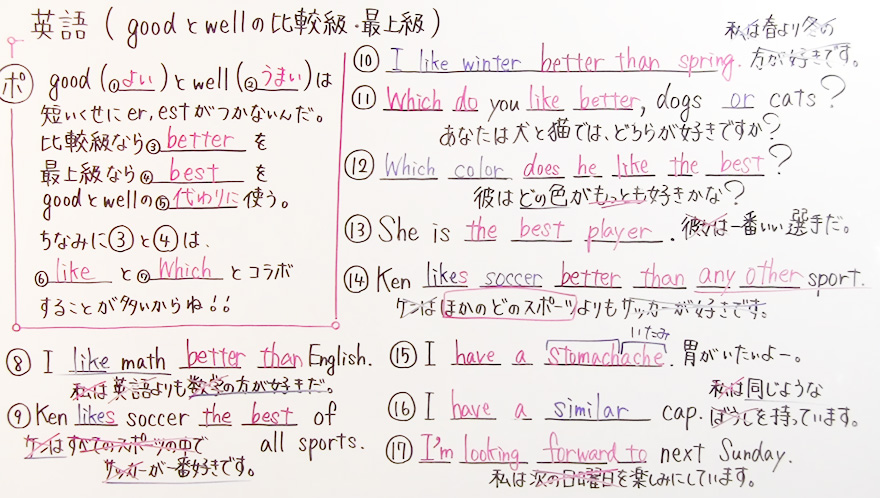 英語 (good と well の比較級・最上級)
ポ
good (①よい) と well (②うまい) は
短いくせに er, est がつかないんだ。
比較級なら③ better を
最上級なら④ best を
good と well の⑤代わりに使う。
ちなみに③と④は、
⑥ like と⑦ Which とコラボ
することが多いからね!!
⑧ I like math better than English.
私は英語よりも数学の方が好きだ。
⑨ Ken likes soccer the best of
all sports.
ケンはすべてのスポーツの中で
サッカーが一番好きです。
私は春より冬の
方が好きです。
⑩ I like winter better than spring.
⑪ Which do you like better, dogs or cats?
あなたは犬と猫では、どちらが好きですか?
⑫ Which color does he like the best?
彼はどの色がもっとも好きかな?
⑬ She is the best player. 彼女は一番いい選手だ。
⑭ Ken likes soccer better than any other sport.
ケンはほかのどのスポーツよりもサッカーが好きです。
いたみ
⑮ I have a stomachache. 胃がいたいよー。
⑯ I have a similar cap.
私は同じような
ぼうしを持っています。
⑰ I'm looking forward to next Sunday.
私は次の日曜日を楽しみにしています。